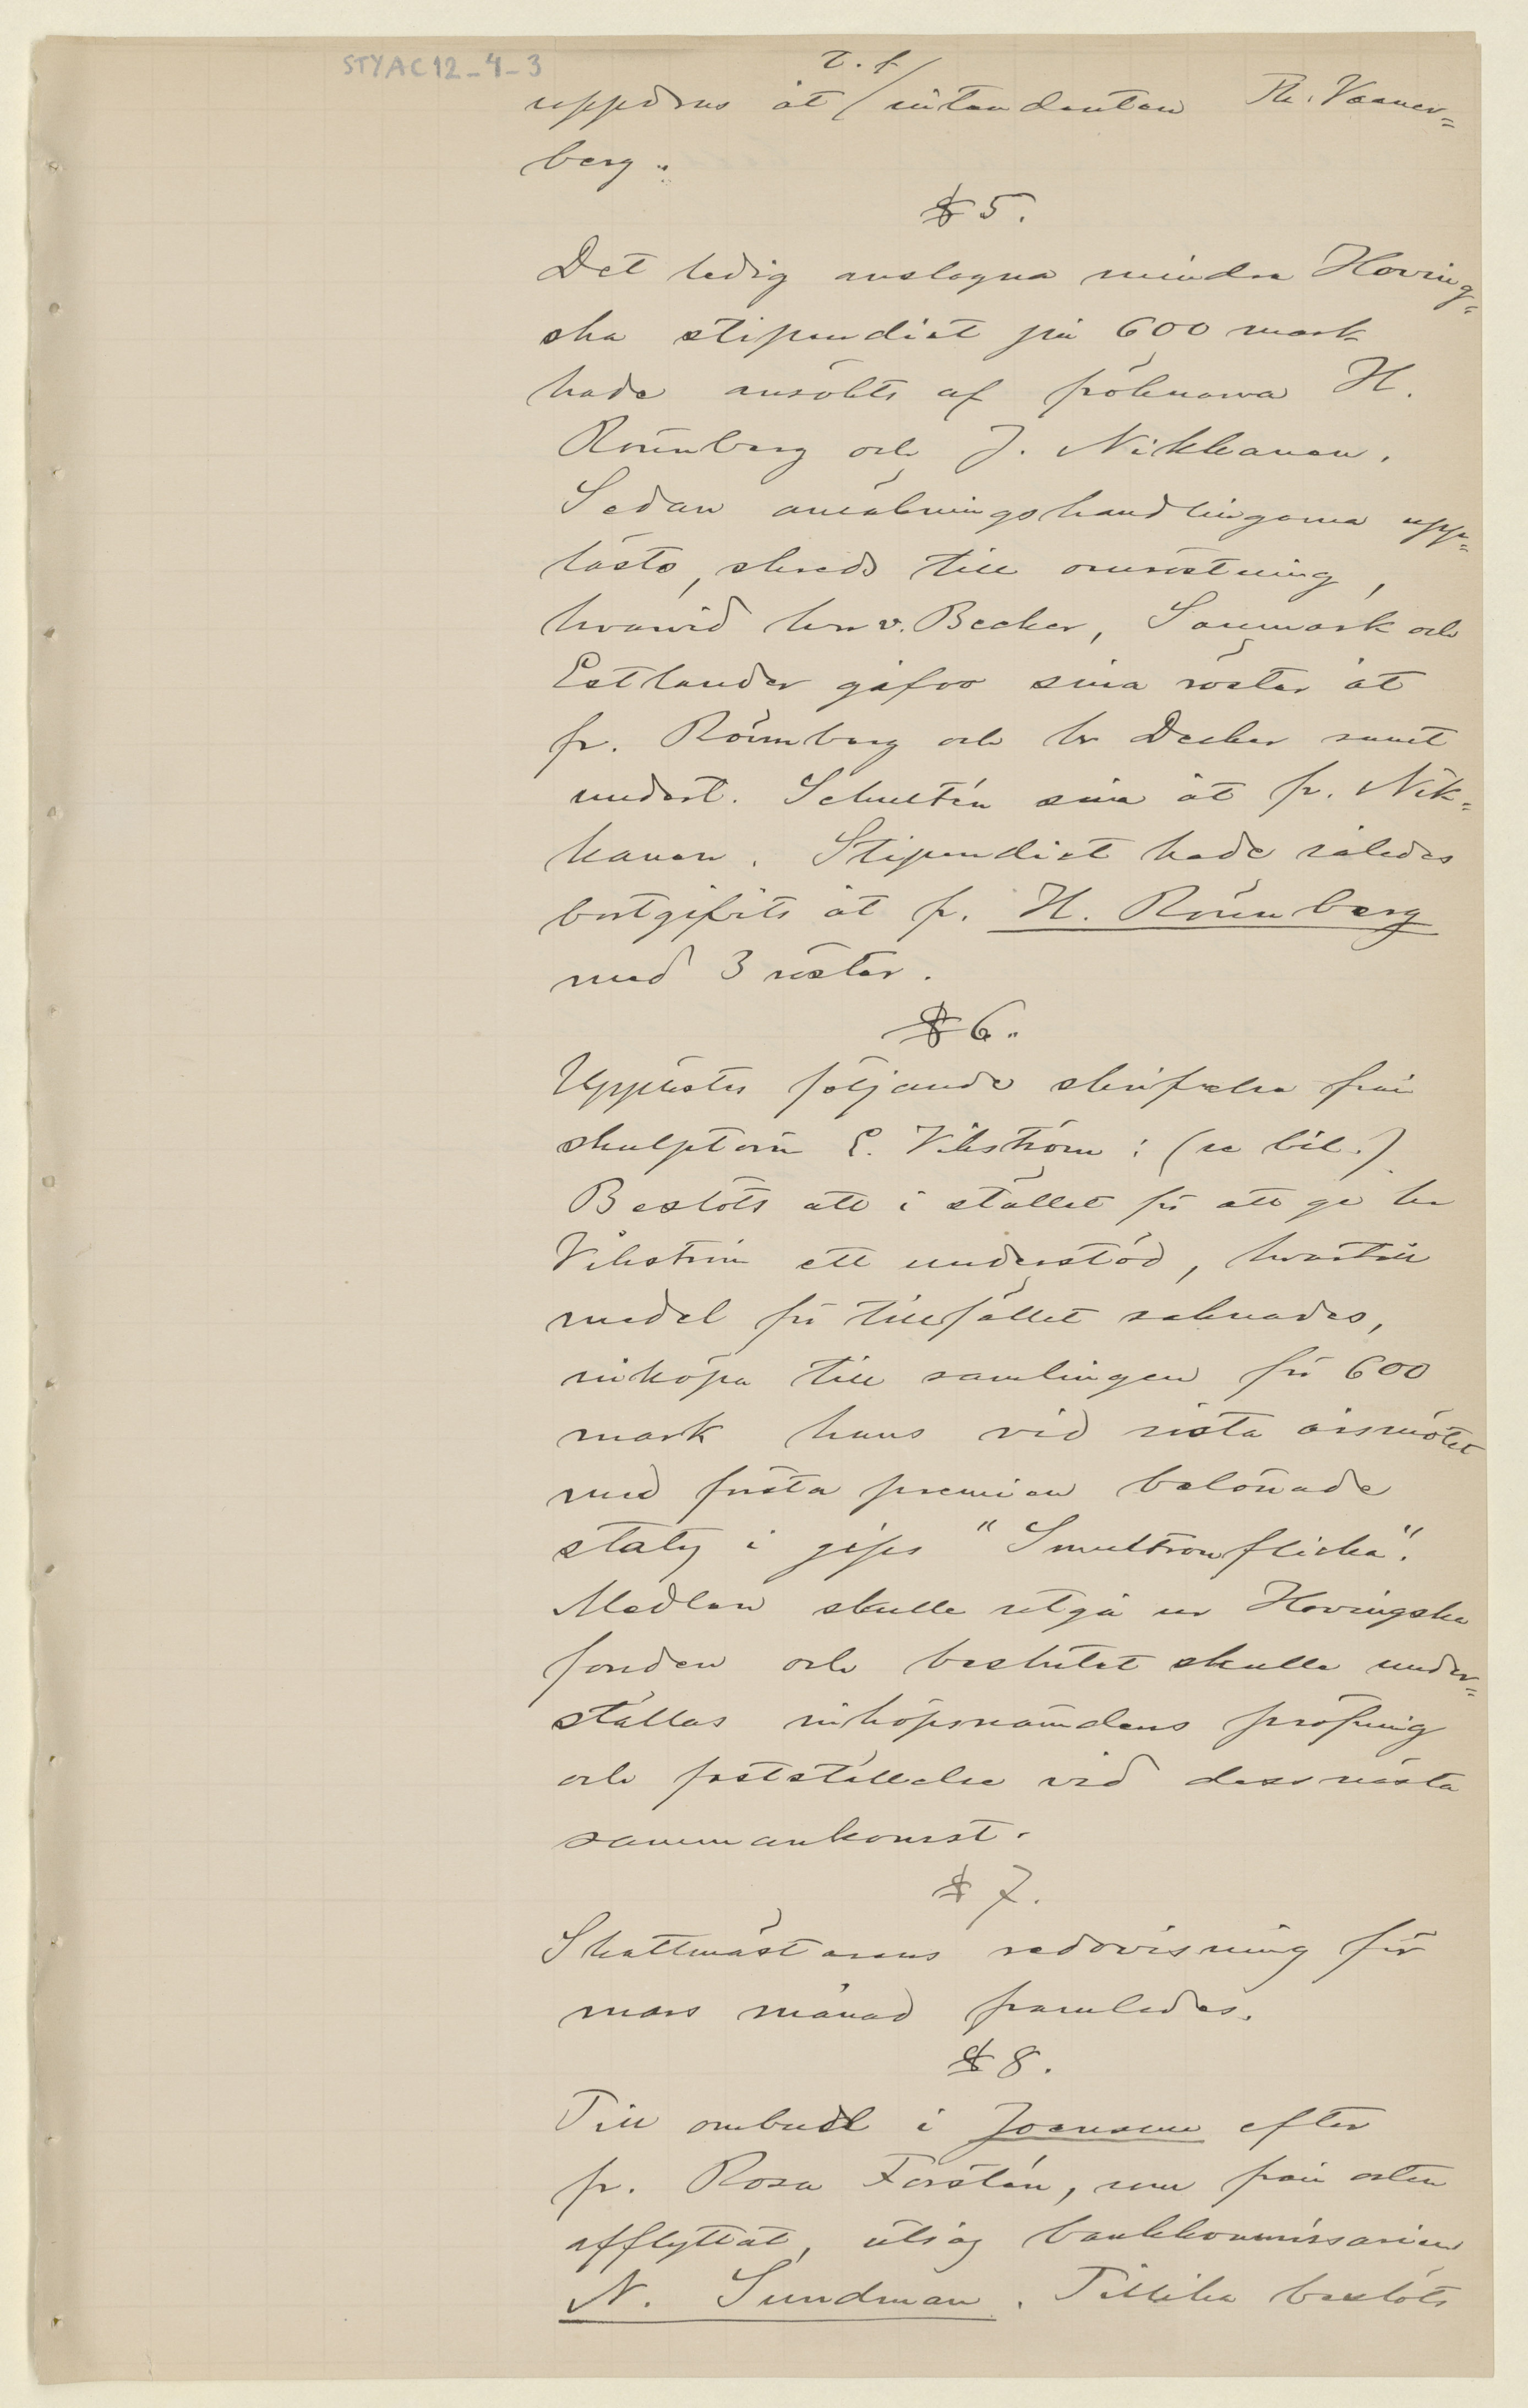 STYAC12-4-3
t. f.
uppdrus åt / intendenten Th. Wæner=
berg.
§ 5.
Det ledig anslagna mindre Hoving=
ska stipendiet på 600 mark
hade ansökts af fröknarna H.
Rönnberg och J. Nikkanen.
Sedan ansökningshandlingarna upp=
lästs, skreds till omröstning,
hvarvid hrr v. Becker, Sanmark och
Estlander gåfvo sina röster åt
fr. Rönnberg och hr Decker samt
undert. Schultén sina åt fr. Nik=
kanen. Stipendiet hade således
bortgifvits åt fr. H. Rönnberg
med 3 röster.
§ 6.
Upplästes följande skrifvelse från
skulptorn E. Vikström : (se bil.)
Beslöts att i stället för att ge hr
Vikström ett understöd, hvartill
medel för tillfället saknades,
inköpa till samlingen för 600
mark hans vid sista årsmötet
med första premien belönade
staty i gips "Smultronflicka".
Medlen skulle utgå ur Hovingska
fonden och beslutet skulle under=
ställas inköpsnämdens pröfning
och fastställelse vid dess nästa
sammankomst.
§ 7.
Skattmästarens redovisning för
mars månad framlades.
§ 8.
Till ombud i Joensuu efter
fr. Rosa Forstén, som från orten
afflyttat, utsågs bankkommissarien
N. Sundman. Tillika beslöts